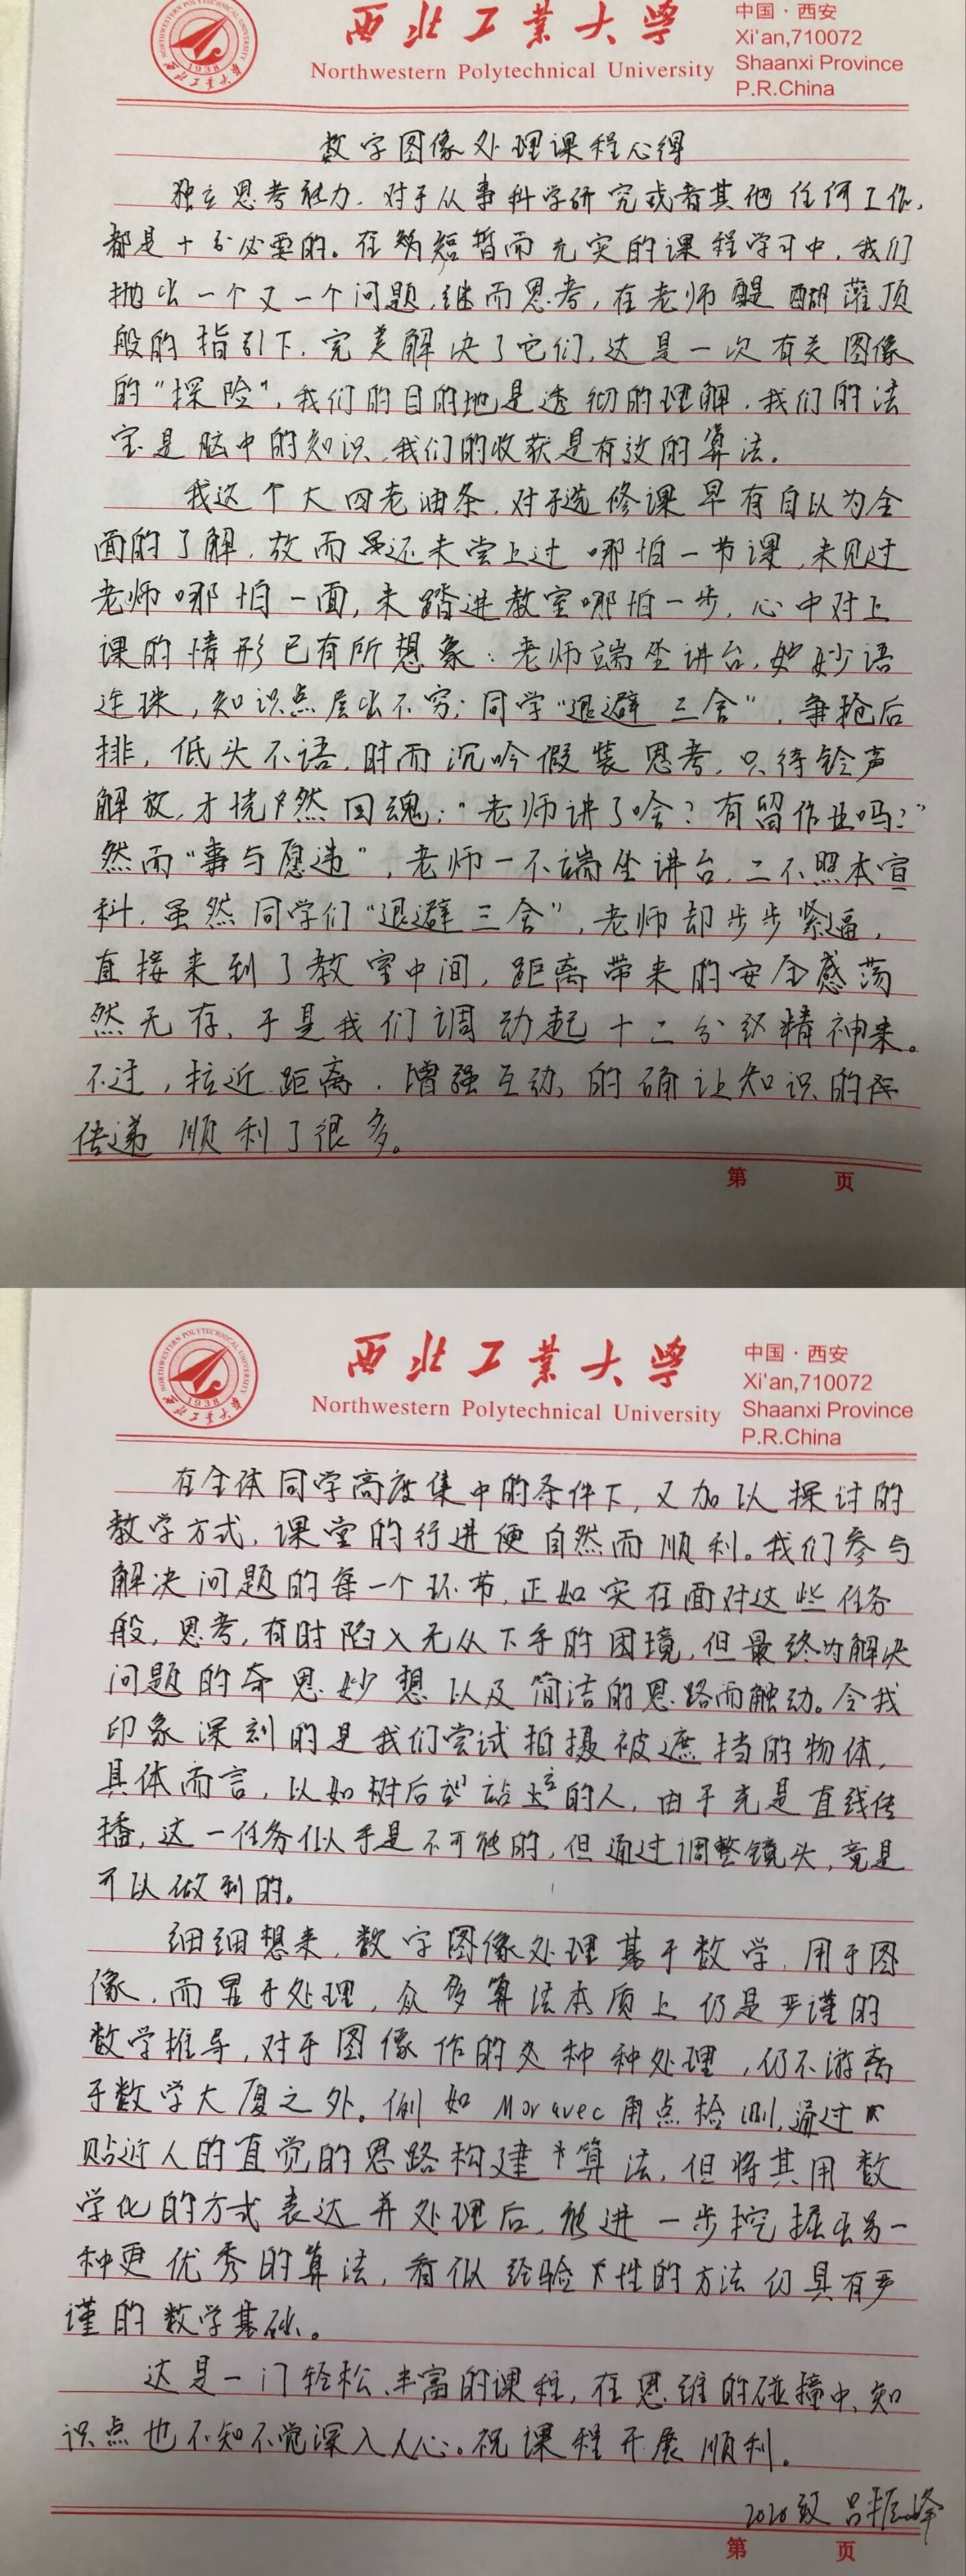 西北工业大学
Northwestern Polytechnical University
中国·西安
Xi'an,710072
Shaanxi Province
P.R.China
数字图像处理课程心得
独立思考能力,对于从事科学研究或者其他任何工作,
都是十分必要的。在短暂而充实的课程学习中,我们
抛出一个又一个问题,继而思考,在老师醍醐灌顶
般的指引下,完美解决了它们,这是一次有关图像
的“探险”,我们的目的地是透彻的理解,我们的法
宝是脑中的知识,我们的收获是有效的算法。
我这个大四老油条,对于选修课早有自以为全
面的了解,故而虽还未尝上过哪怕一节课,未见过
老师哪怕一面,未踏进教室哪怕一步,心中对上
课的情形已有所想象:老师端坐讲台,妙语
连珠,知识点层出不穷;同学“退避三舍”,争抢后
排,低头不语,时而沉吟假装思考,只待铃声
解放,才恍然回魂:“老师讲了啥?有留作业吗?”
然而“事与愿违”,老师一不端坐讲台,二不照本宣
科,虽然同学们“退避三舍”,老师却步步紧逼,
直接来到了教室中间,距离带来的安全感荡
然无存,于是我们调动起十二分精神来。
不过,拉近距离,增强互动,的确让知识的
传递顺利了很多。
第 页
西北工业大学
Northwestern Polytechnical University
中国·西安
Xi'an,710072
Shaanxi Province
P.R.China
在全体同学高度集中的条件下,又加以探讨的
教学方式,课堂的行进便自然而顺利。我们参与
解决问题的每一个环节,正如实在面对这些任务
般,思考,有时陷入无从下手的困境,但最终为解决
问题的奇思妙想以及简洁的思路而触动。令我
印象深刻的是我们尝试拍摄被遮挡的物体,
具体而言,以如树后站立的人,由于光是直线传
播,这一任务似乎是不可能的,但通过调整镜头,竟是
可以做到的。
细细想来,数字图像处理基于数学,用于图
像,而显于处理,众多算法本质上仍是严谨的
数学推导,对于图像作的种种处理,仍不游离
于数学大厦之外。例如Moravec角点检测,通过
贴近人的直觉的思路构建算法,但将其用数
学化的方式表达并处理后,能进一步挖掘出另一
种更优秀的算法,看似经验性的方法仍具有严
谨的数学基础。
这是一门轻松、丰富的课程,在思维的碰撞中,知
识点也不知不觉深入人心。祝课程开展顺利。
2020级 吕振峰
第 页